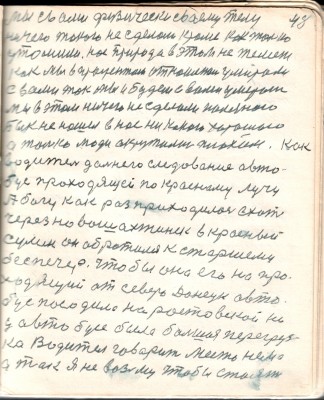 48
мы своим физически своему телу
ничего такого не сделали кроме как только
утомили. Нас природа в этом не
как мы в
с вами так мы и будем с вами
мы в этом ничего не сделали полезного
так не нашли в нас никакого хорошего
а только люди окрутили плохим. Как
водится дальнего следование авто-
бус проходящей по Красному Лучу
Я богу как раз приходилося ехать
через новошахтинск в Красный
сулин он обротился к старшему
беспечер. Чтобы она его на про-
ходящий от северо Донецк авто-
бус посодила на ростовской но
у автобусе была большая перегруз-
ка Водител говарит место нема
а так я не возму чтобы стоят